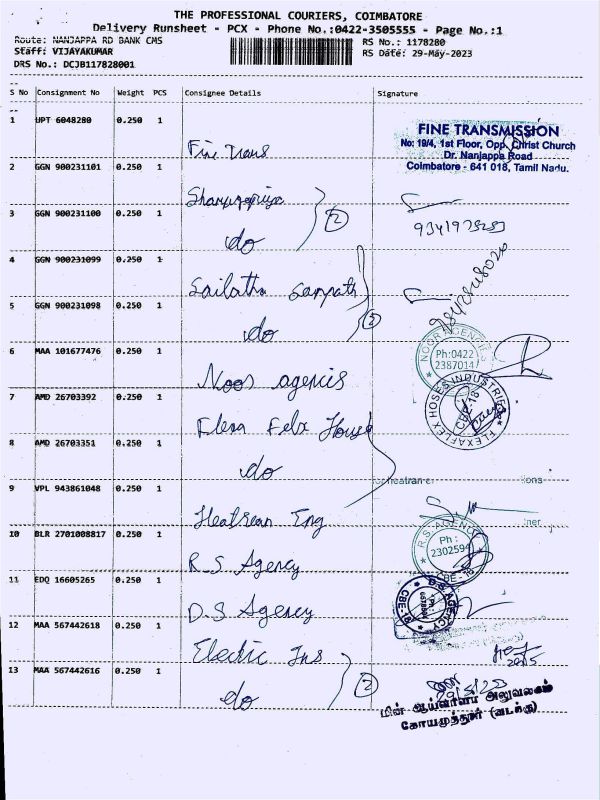 THE PROFESSIONAL COURIERS, COIMBATORE
Delivery Runsheet - PCX - Phone No.:0422-3505555 - Page No.:1
Route: NANJAPPA RD BANK CMS
Staff: VIJAYAKUMAR
DRS No.: DCJB117828001
RS No.: 1178280
RS Date: 29-May-2023
S No Consignment No Weight PCS Consignee Details Signature
1 UPT 6048280 0.250 1
Fine Trans
FINE TRANSMISSION
No: 19/4, 1st Floor, Opp. Christ Church
Dr. Nanjappa Road
Coimbatore - 641 018, Tamil Nadu.
2 GGN 900231101 0.250 1
3 GGN 900231100 0.250 1
do
2
4 GGN 900231099 0.250 1
5 GGN 900231098 0.250 1
do
2
6 MAA 101677476 0.250 1
Noor agencis
NOOR AGENCIES
Ph:0422
2387014
7 AMD 26703392 0.250 1
FLEXAFLEX HOSES INDUSTRIES
CBE-18
8 AMD 26703351 0.250 1
do
9 VPL 943861048 0.250 1
10 BLR 2701008817 0.250 1
R.S Agency
R.S. AGENCY
Ph :
2302594
CBE
11 EDQ 16605265 0.250 1
D.S Agency
D.S. AGENCY
CBE-18
12 MAA 567442618 0.250 1
Electric Ins
13 MAA 567442616 0.250 1
do
2
மின் ஆய்வாளர் அலுவலகம்
கோயமுத்தூர் (வடக்கு)